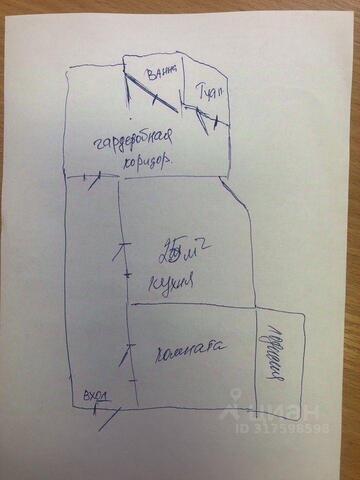 ванна
Туал.
гардеробная
коридор.
25 м²
кухня
комната
лоджия
вход
циан
ID 317598598